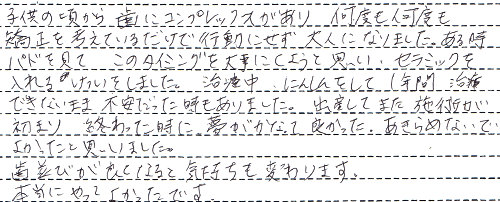 子供の頃から歯にコンプレックスがあり 何度も何度も
矯正を考えているだけで行動にせず大人になりました。ある時
パドを見て このタイミングを大事にしようと思い、セラミックを
入れるけついをしました。治療中 にんしんをして 1年間 治療
できないまま 不安だった時もありました。出産してまた施術が
始まり 終わった時に夢がかなって良かった。あきらめないで
よかったと思いました。
歯並びが良くなると気持ちも変わります。
本当にやってよかったです。